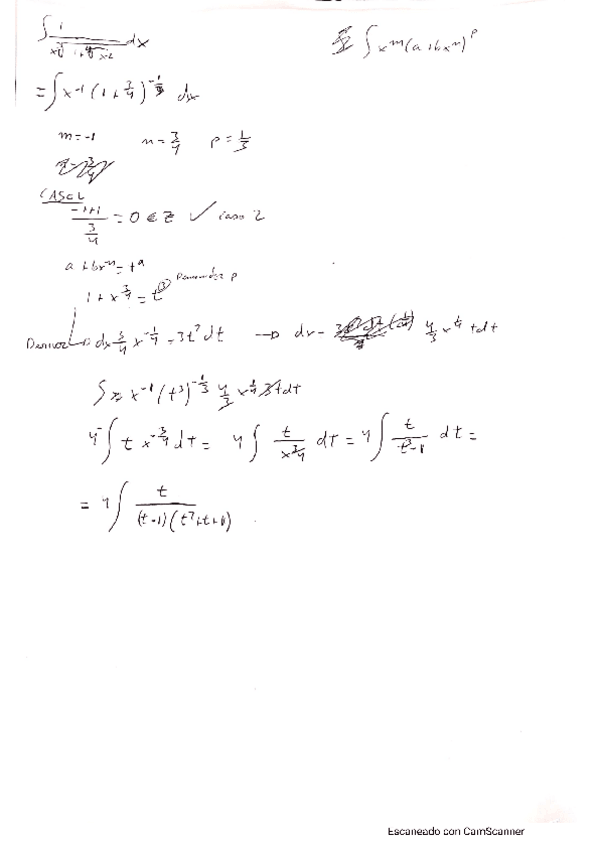 ∫ 1/(x ∛(1+∜x²)) dx
∫ x^m (a+bx^n)^p
= ∫ x^-1 (1 + 3/4)^-1/3 dx
m=-1 n=3/4 p=1/3
CASO
(-1+1)/(3/4) = 0 ∈ Z ✓ caso 2
a+bx^n = t^
1+x^3/4 = t^3 Denominador p
dx 3/4 x^-1/4 = 3t² dt → dx = 4/3 x^1/4 t dt
∫ x^-1 (t³)^-1/3 4/3 x^1/4 3t dt
4 ∫ t x^-3/4 dt = 4 ∫ t/x^3/4 dt = 4 ∫ t/(t³-1) dt =
= 4 ∫ t/((t-1)(t²+t+1))
Escaneado con CamScanner